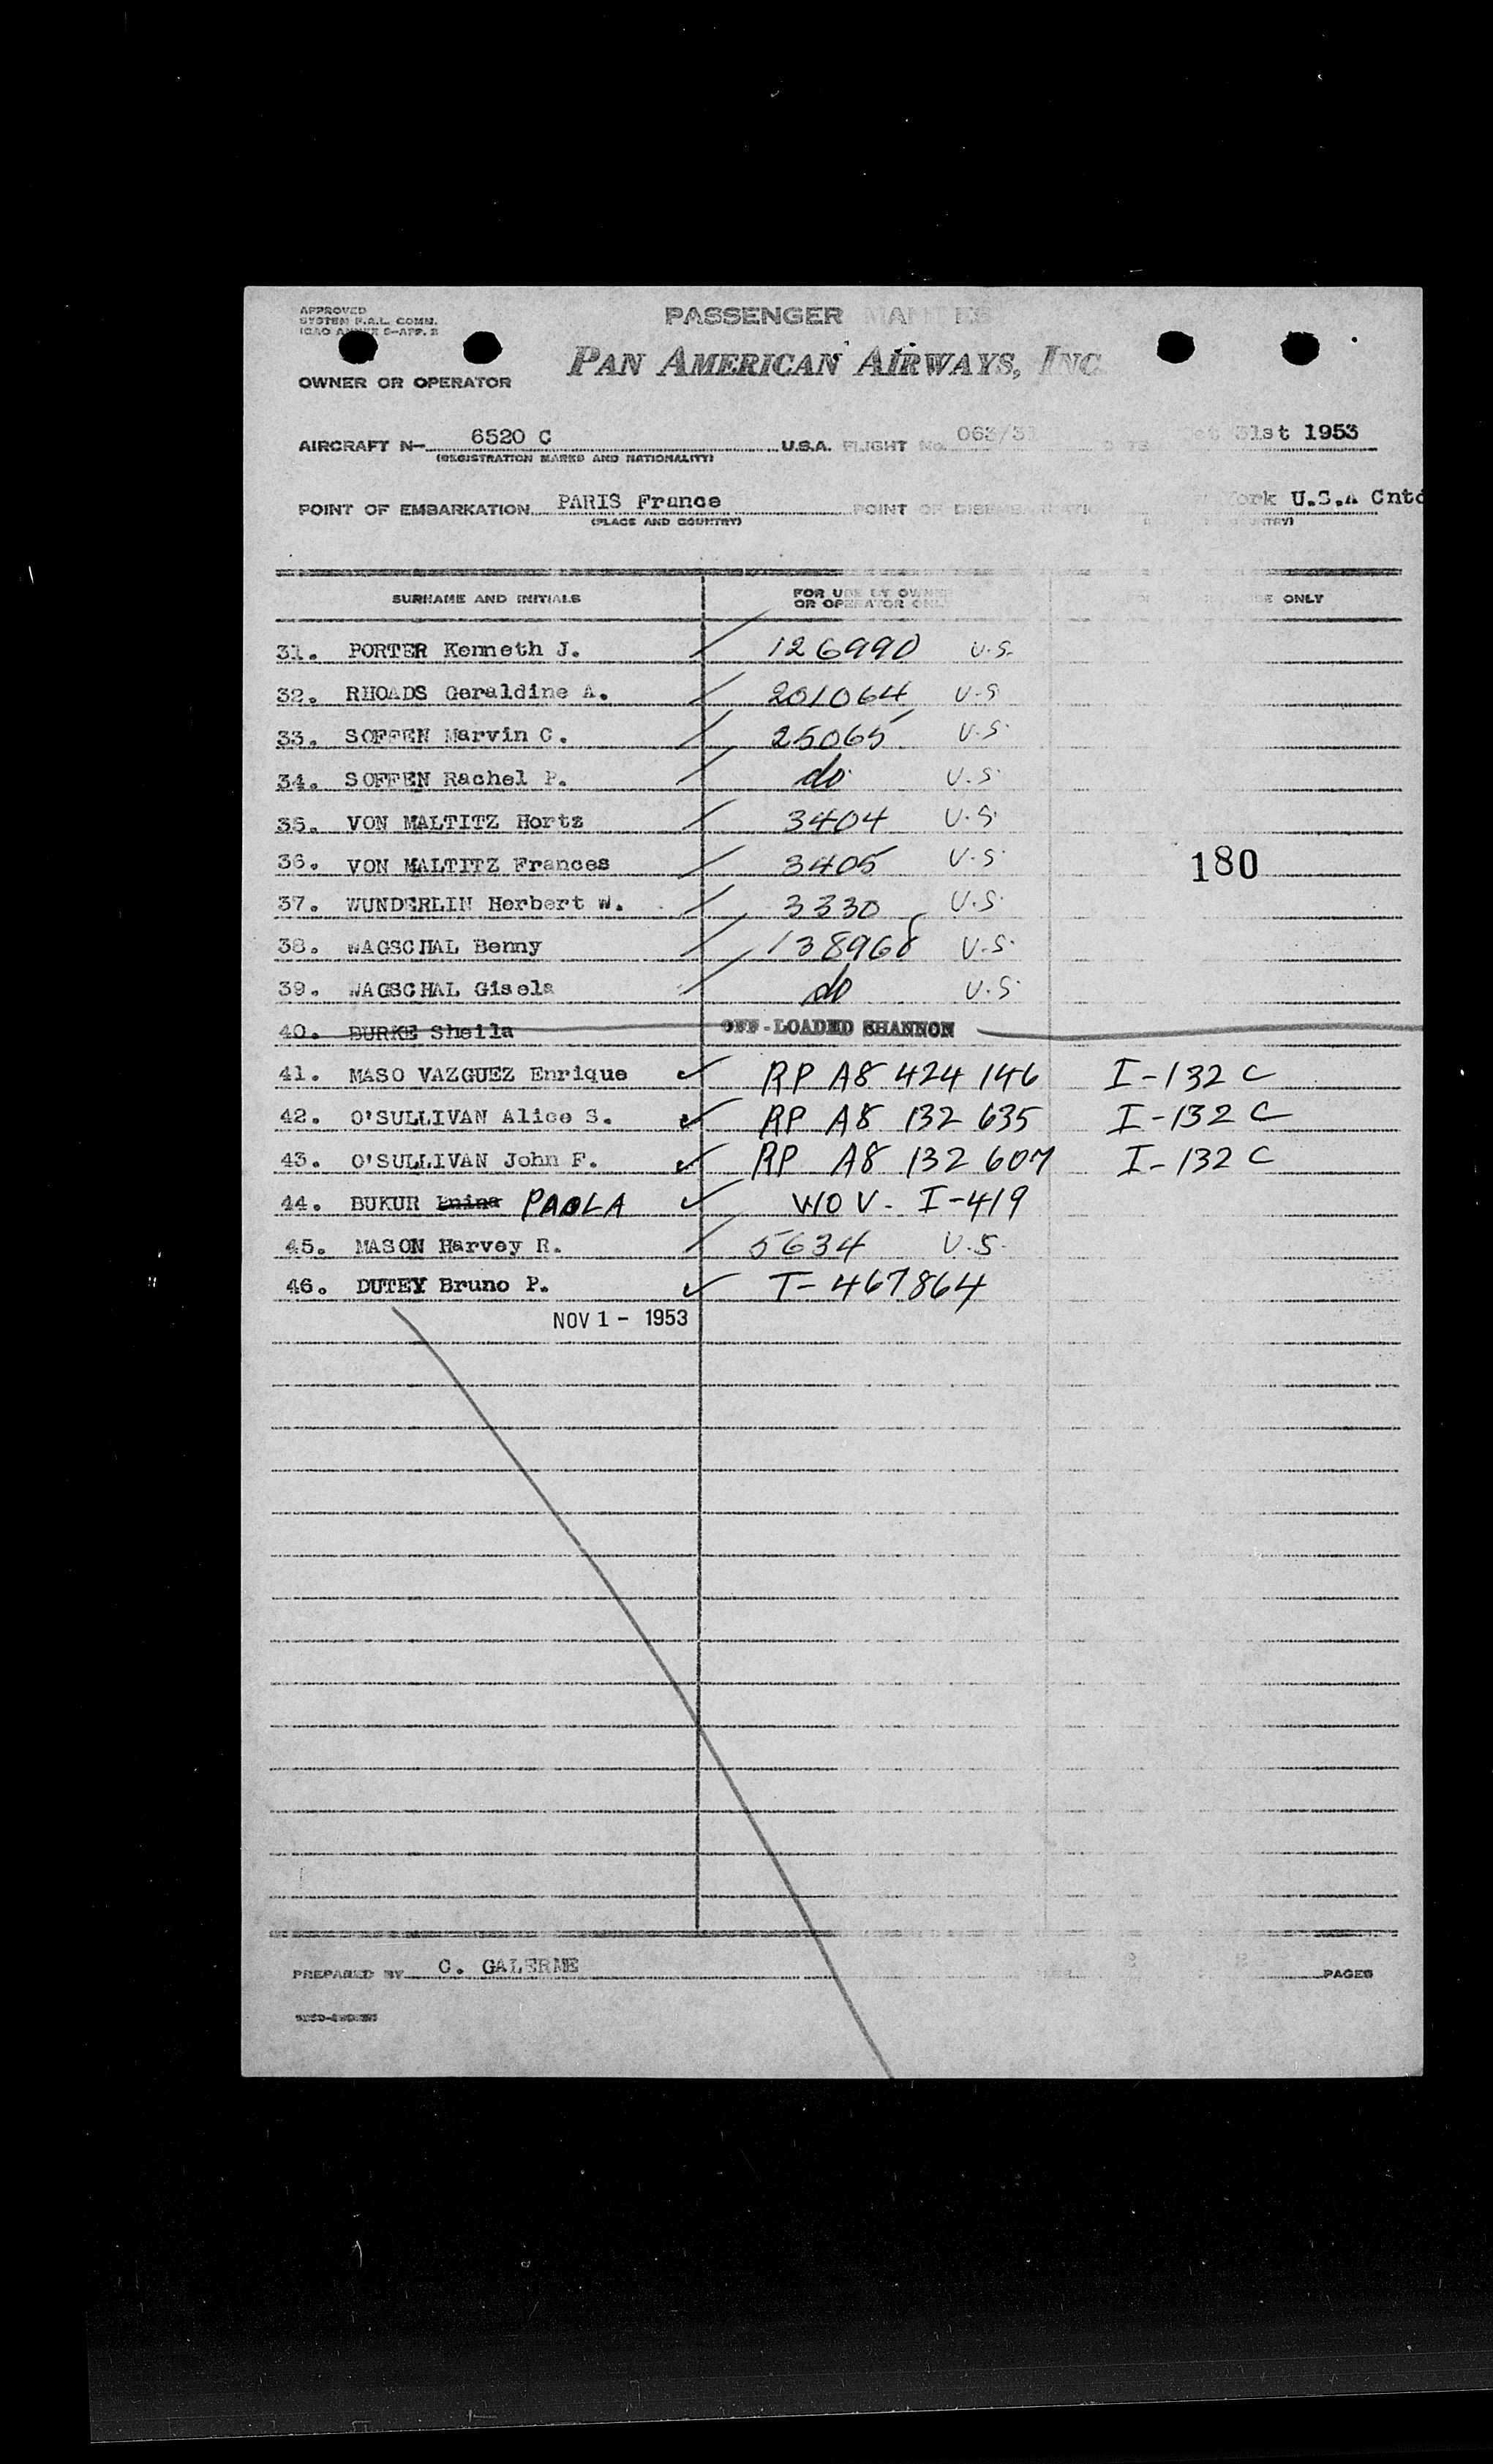 APPROVED
SYSTEM F.A.L. COMM.
PASSENGER
OWNER OR OPERATOR
PAN AMERICAN AIRWAYS, INC
AIRCRAFT N- 6520 C U.S.A. FLIGHT No. 063/31 31st 1953
(REGISTRATION MARKS AND NATIONALITY)
POINT OF EMBARKATION PARIS France POINT OF York U.S.A Cntd
(PLACE AND COUNTRY)
SURNAME AND INITIALS FOR USE BY OWNER ONLY
OR OPERATOR ONLY
31. PORTER Kenneth J. / 126990 U.S.
32. RHOADS Geraldine A. / 201064 U.S
33. SOFFEN Marvin C. / 25065 U.S.
34. SOFFEN Rachel P. / do U.S.
35. VON MALTITZ Horts / 3404 U.S.
36. VON MALTITZ Frances / 3405 U.S. 180
37. WUNDERLIN Herbert W. / 3330 U.S.
38. WAGSCHAL Benny / 138968 U.S.
39. WAGSCHAL Gisela / do U.S.
40. BURKE Sheila OFF-LOADED SHANNON
41. MASO VAZGUEZ Enrique ✓ RP A8 424 146 I-132 C
42. O'SULLIVAN Alice S. ✓ RP A8 132 635 I-132 C
43. O'SULLIVAN John F. ✓ RP A8 132 607 I-132 C
44. BUKUR PAOLA ✓ WOV- I-419
45. MASON Harvey R. / 5634 U.S.
46. DUTEY Bruno P. ✓ T-467864
NOV 1 - 1953
PREPARED BY C. GALERNE PAGES